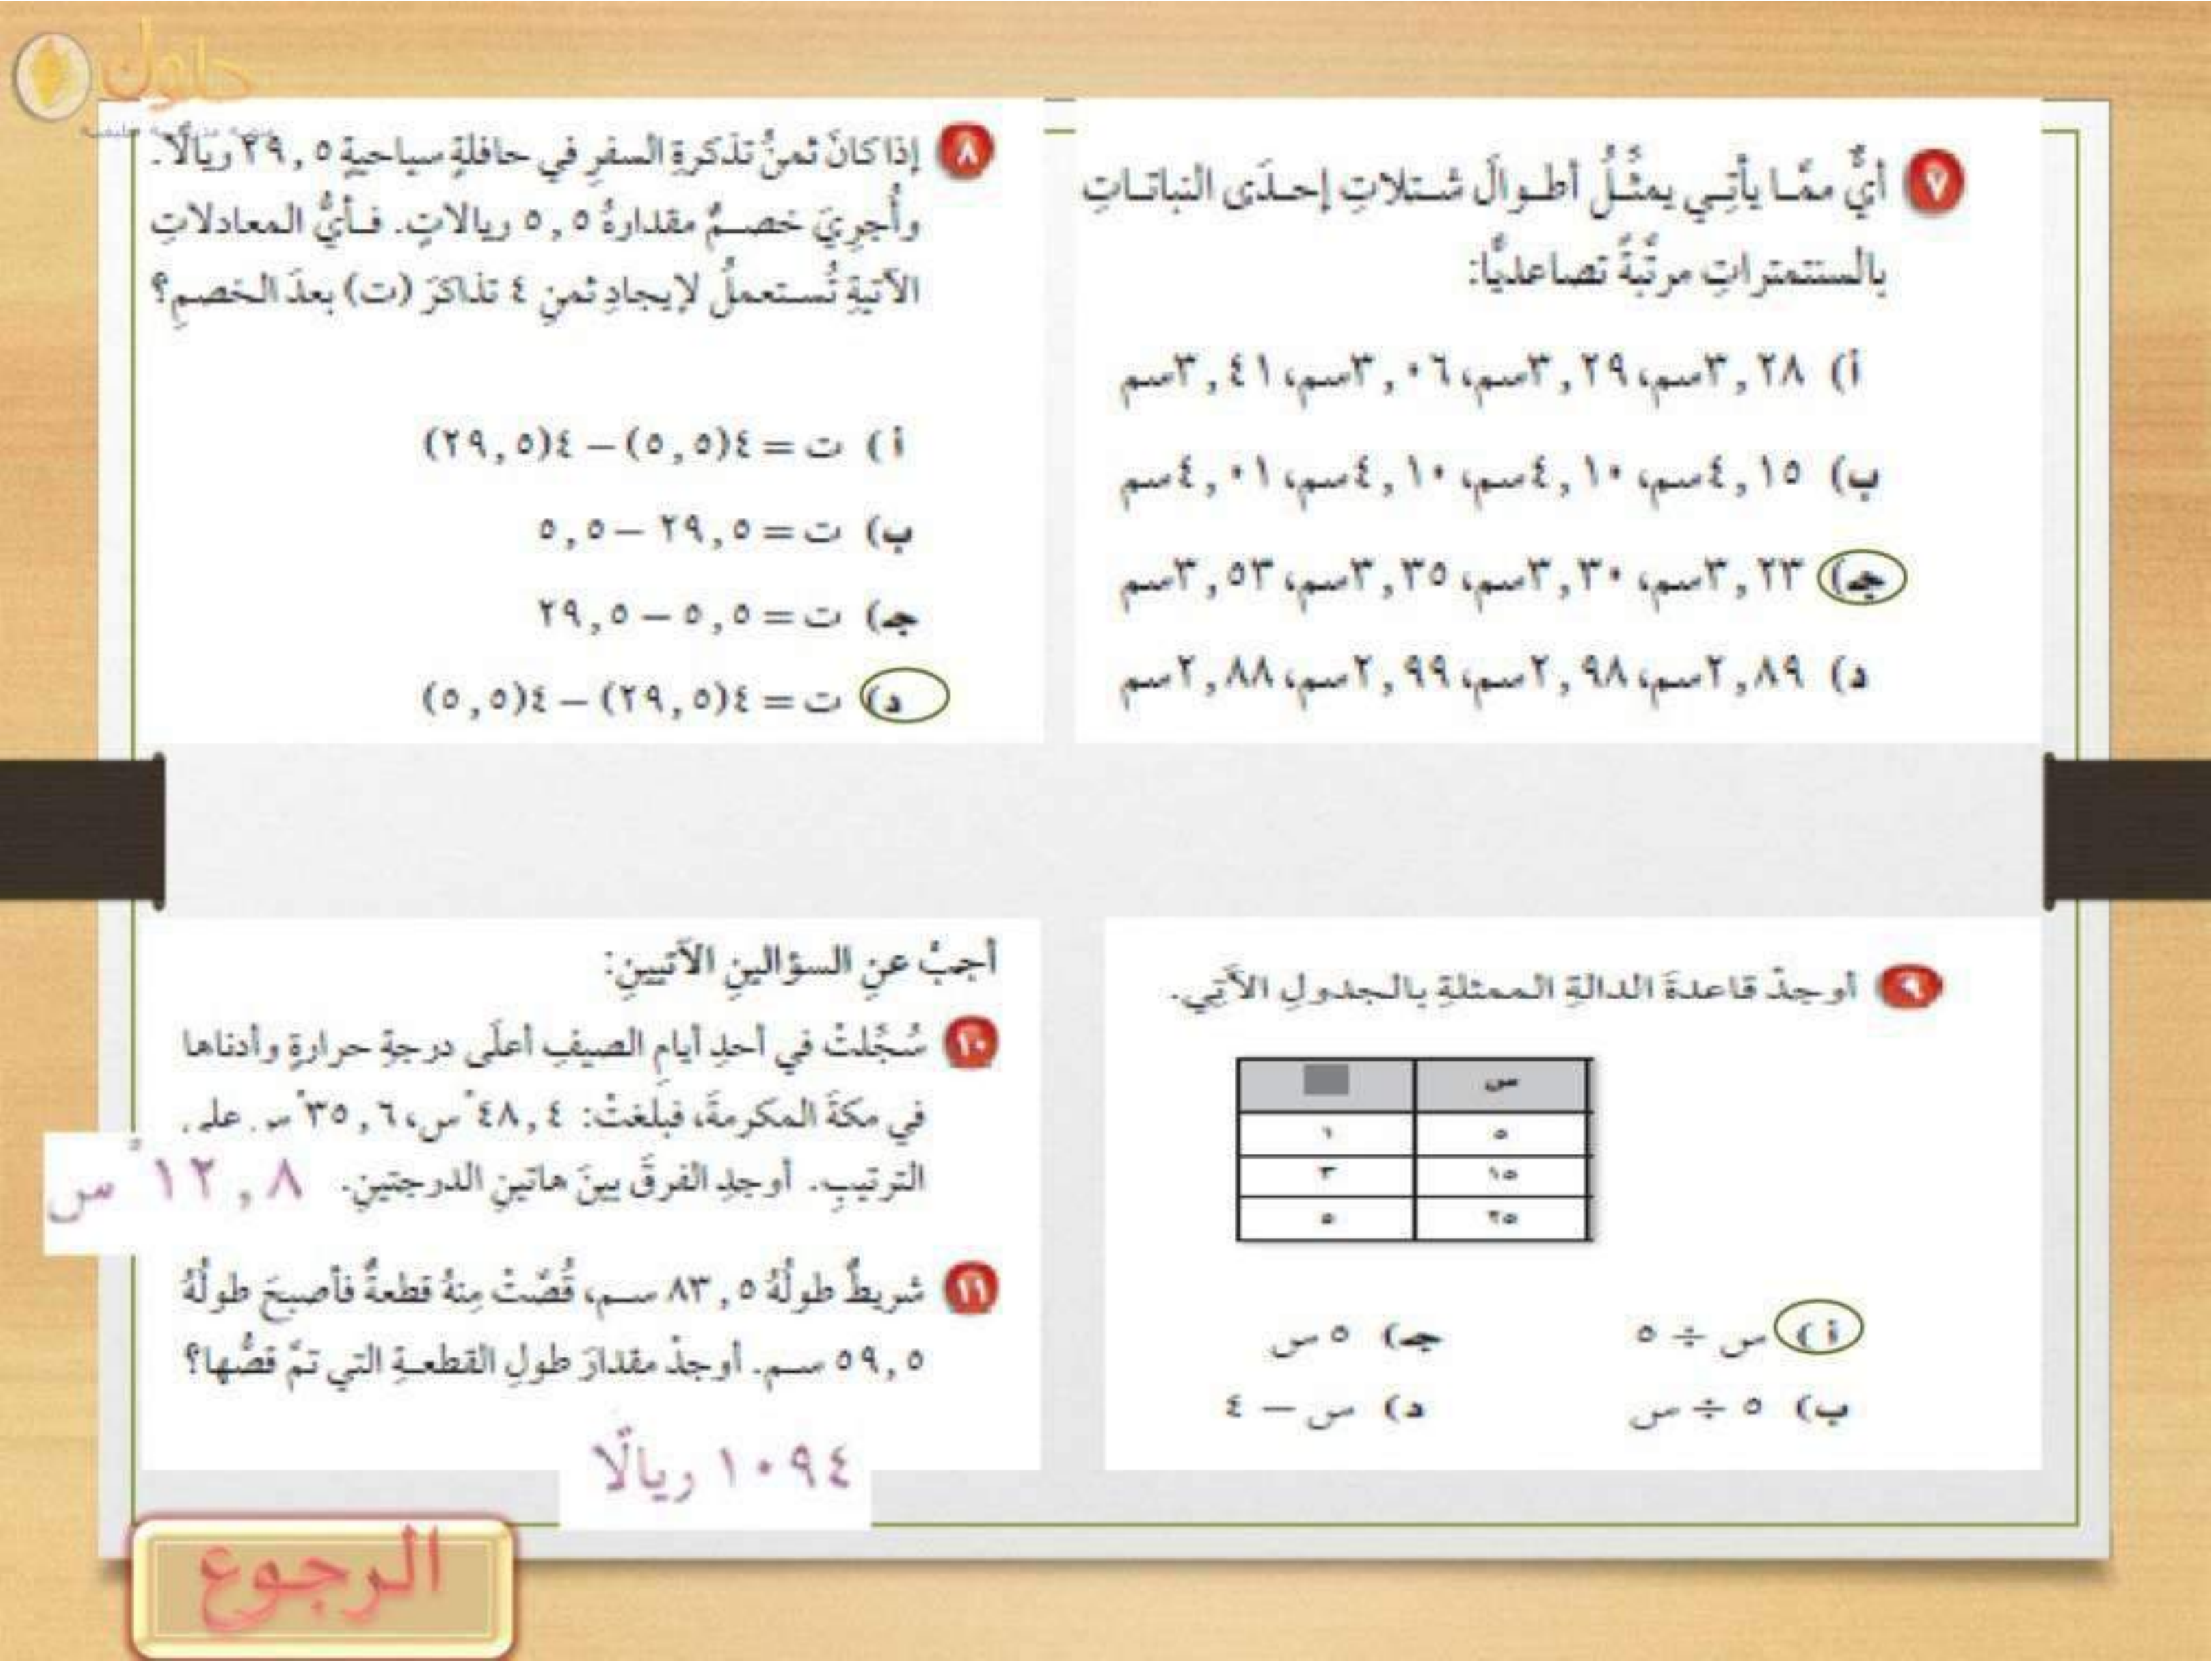 حلول
٧ أيٌّ ممَّا يأتِي يمثِّلُ أطوالَ شتلاتِ إحدَى النباتاتِ
بالسنتمتراتِ مرتَّبةً تصاعديًّا:
أ) ٣,٢٨سم، ٣,٢٩سم، ٣,٠٦سم، ٣,٤١سم
ب) ٤,١٥سم، ٤,١٠سم، ٤,١٠سم، ٤,٠١سم
جـ) ٣,٢٣سم، ٣,٣٠سم، ٣,٣٥سم، ٣,٥٣سم
د) ٢,٨٩سم، ٢,٩٨سم، ٢,٩٩سم، ٢,٨٨سم
٨ إذا كانَ ثمنُ تذكرةِ السفرِ في حافلةٍ سياحيةٍ ٢٩,٥ ريالًا.
وأُجريَ خصمٌ مقدارهُ ٥,٥ ريالاتٍ. فأيُّ المعادلاتِ
الآتيةِ تُستعملُ لإيجادِ ثمنِ ٤ تذاكرَ (ت) بعدَ الخصمِ؟
أ) ت = ٤(٥,٥) – ٤(٢٩,٥)
ب) ت = ٢٩,٥ – ٥,٥
جـ) ت = ٥,٥ – ٢٩,٥
د) ت = ٤(٢٩,٥) – ٤(٥,٥)
٩ أوجدْ قاعدةَ الدالةِ الممثلةِ بالجدولِ الآتِي.
س
٥ ١
١٥ ٣
٢٥ ٥
أ) س ÷ ٥ جـ) ٥ س
ب) ٥ ÷ س د) س – ٤
أجبْ عنِ السؤالينِ الآتيينِ:
١٠ سُجِّلتْ في أحدِ أيامِ الصيفِ أعلَى درجةِ حرارةٍ وأدناها
في مكةَ المكرمةَ، فبلغتْ: ٤٨,٤°س، ٣٥,٦°س على
الترتيبِ. أوجدِ الفرقَ بينَ هاتينِ الدرجتينِ. ١٢,٨°س
١١ شريطٌ طولُهُ ٨٣,٥ سم، قُصَّتْ مِنهُ قطعةٌ فأصبحَ طولُهُ
٥٩,٥ سم. أوجدْ مقدارَ طولِ القطعةِ التي تمَّ قصُّها؟
١٠٩٤ ريالًا
الرجوع